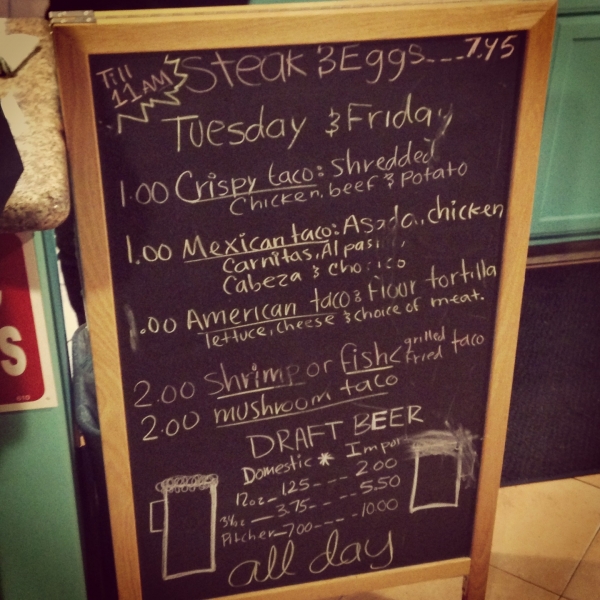 Till 11AM Steak & Eggs...7.45
Tuesday & Friday
1.00 Crispy taco: Shredded
Chicken, beef & Potato
1.00 Mexican taco: Asada, chicken
Carnitas, Al
Cabeza & Chorico
.00 American taco: Flour tortilla
lettuce, cheese & choice of meat.
2.00 Shrimp or fish < grilled fried taco
2.00 mushroom taco
DRAFT BEER
Domestic * Impor
12oz - 1.25 ---- 2.00
3.75 ---- 5.50
Pitcher - 7.00 ---- 10.00
all day
S